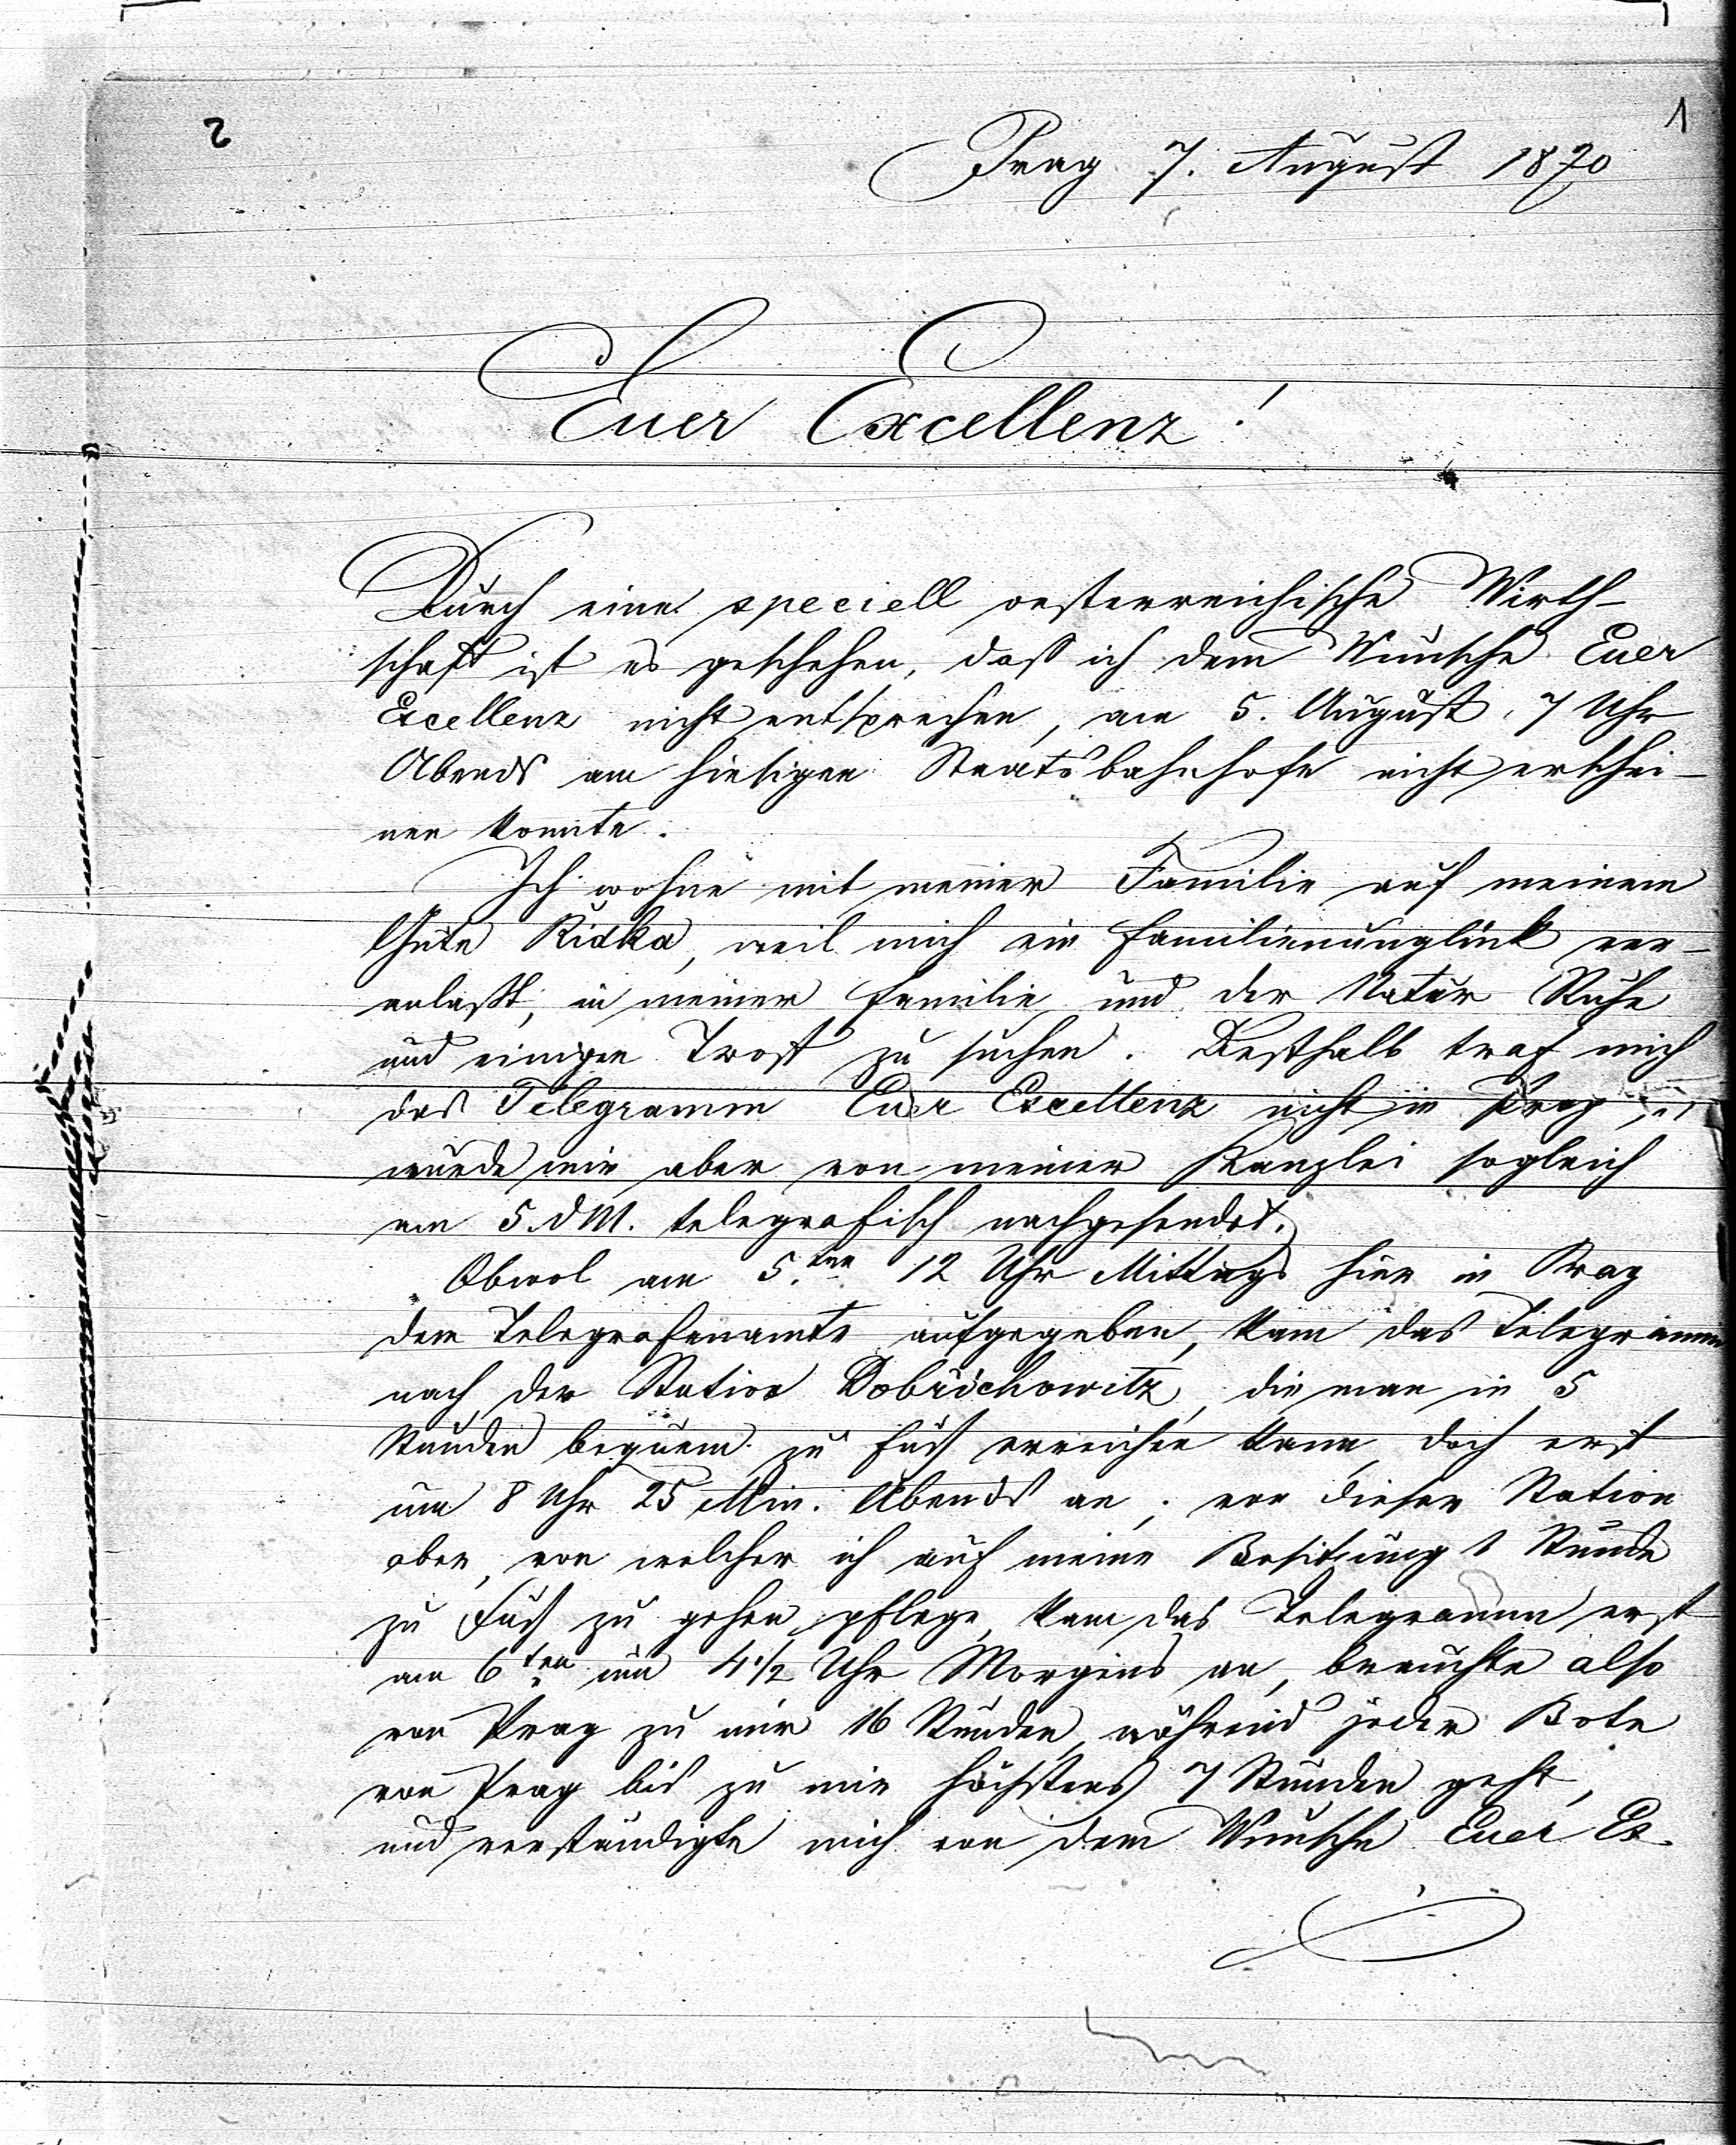 2
1
Prag 7. August 1870
Euer Excellenz!
Durch eine speciell oesterreichische Wirth-
schaft ist es geschehen, daß ich dem Wunsche Euer
Excellenz nicht entsprechen, am 5. August, 7 Uhr
Abends am hiesigen Staatsbahnhofe nicht erschei-
nen konnte.
Ich wohne mit meiner Familie auf meinem
Gute Řidka, weil mich ein Familienunglück ver-
anlaßt, in meiner Familie und der Natur Ruhe
und einigen Trost zu suchen. Desshalb traf mich
das Telegramm Euer Excellenz nicht in Prag,
wurde mir aber von meiner Kanzlei sogleich
am 5. d M. telegrafisch nachgesendet.
Obwol am 5.ten 12 Uhr Mittags hier in Prag
dem Telegrafenamte aufgegeben, kam das Telegramm
nach der Station Dobřichowitz, die man in 5
Stunden bequem zu Fuß erreichen kann, doch erst
um 8 Uhr 25 Min. Abends an; von dieser Station
aber, von welcher ich auf meine Besitzung 1 Stunde
zu Fuß zu gehen pflege, kam das Telegramm erst
am 6ten um 4 1/2 Uhr Morgens an, brauchte also
von Prag zu mir 16 Stunden, während jeder Bote
von Prag bis zu mir höchstens 7 Stunden geht,
und verständigte mich von dem Wunsche Euer Ex.